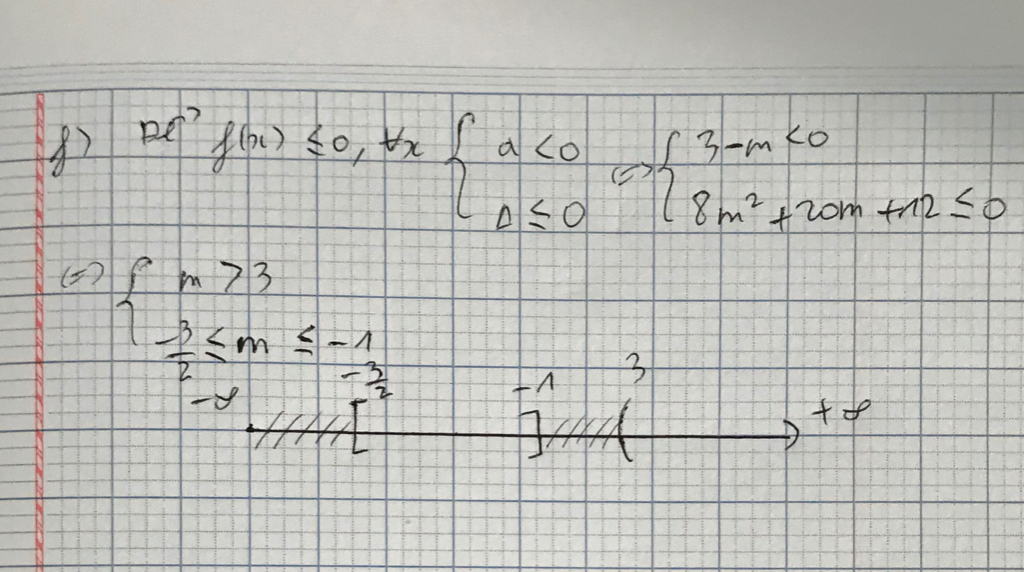 f) Để f(x) ≤ 0, ∀x { a < 0 <=> { 3 - m < 0
Δ ≤ 0 8m² + 20m + 12 ≤ 0
<=> { m > 3
-3/2 ≤ m ≤ -1
-∞ -3/2 -1 3 +∞